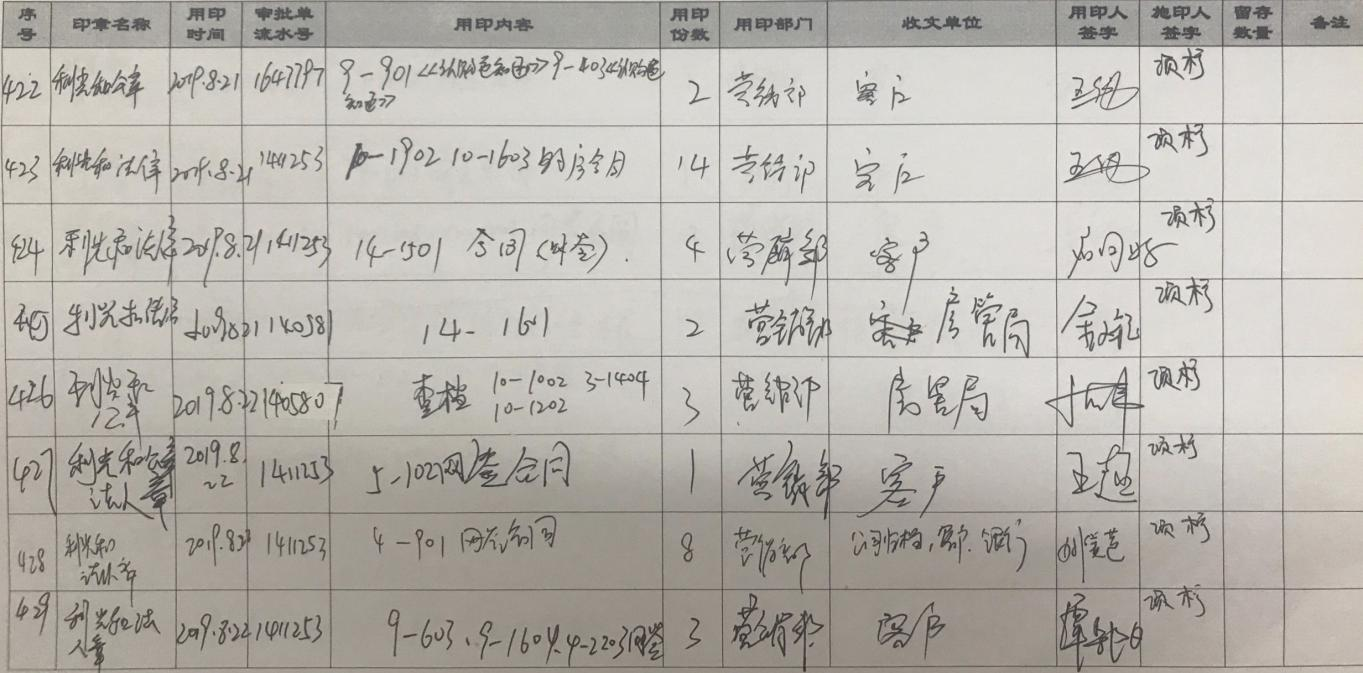 序号 印章名称 用印时间 审批单流水号 用印内容 用印份数 用印部门 收文单位 用印人签字 施印人签字 留存数量 备注
422 利光和公章 2019.8.21 1647797 9-901 9-403 2 营销部 客户 项杉
423 利光和法人章 2019.8.21 1411253 10-1902 10-1603 购房合同 14 营销部 客户 项杉
424 利光和法人章 2019.8.21 1411253 14-1501 合同(网签). 4 营销部 客户 项杉
利光和法人章 2019.8.21 14- 2 营销部 房管局 项杉
426 利光和公章 2019.8.22 1405807 查档 10-1002 3-1404
10-1202 3 营销部 房管局 项杉
427 利光和公章 2019.8.22 1411253 5-102网签合同 1 营销部 客户 项杉
法人章
428 利光和 2019.8.22 1411253 4-901 网签合同 8 营销部 项杉
法人章
429 利光和法 2019.8.22 1411253 9-603、9-1604、4-2203网签 3 营销部 客户 项杉
人章